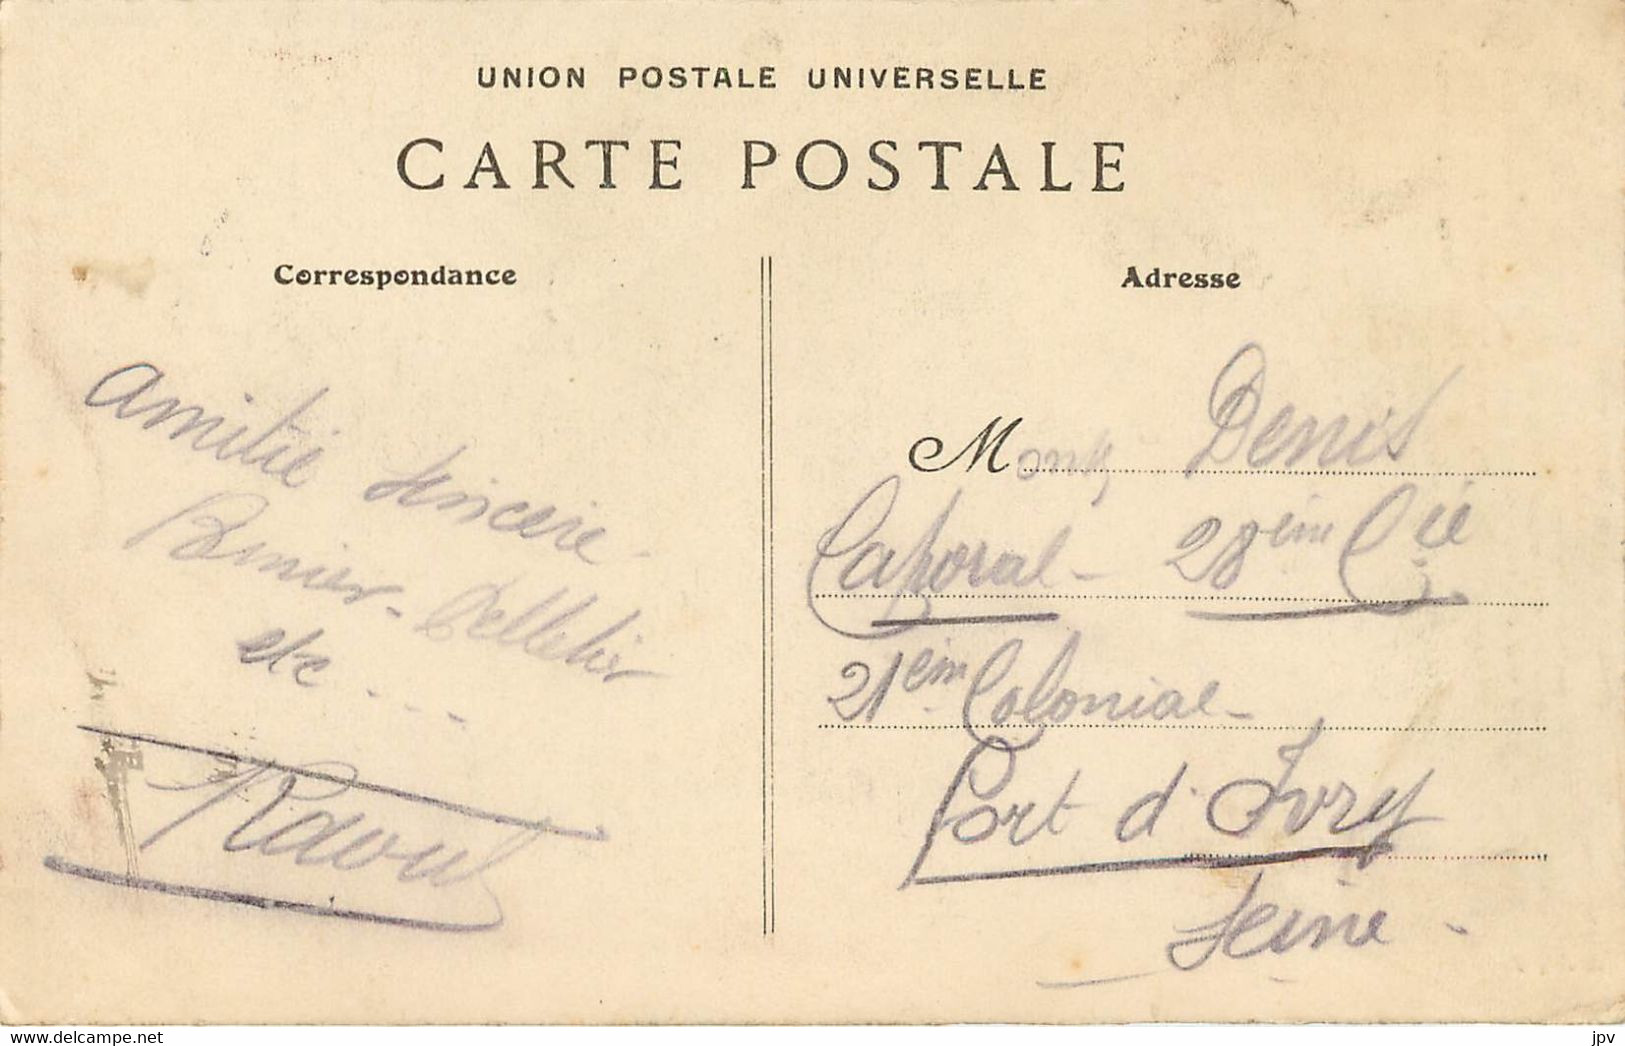 UNION POSTALE UNIVERSELLE
CARTE POSTALE
Correspondance
Amitié Sincère
Pelletier
etc...
Raoul
Adresse
Denis
Caporal - 28èm Cie
21èm Colonial -
Port d'Ivry
Seine -
www.delcampe.net
jpv